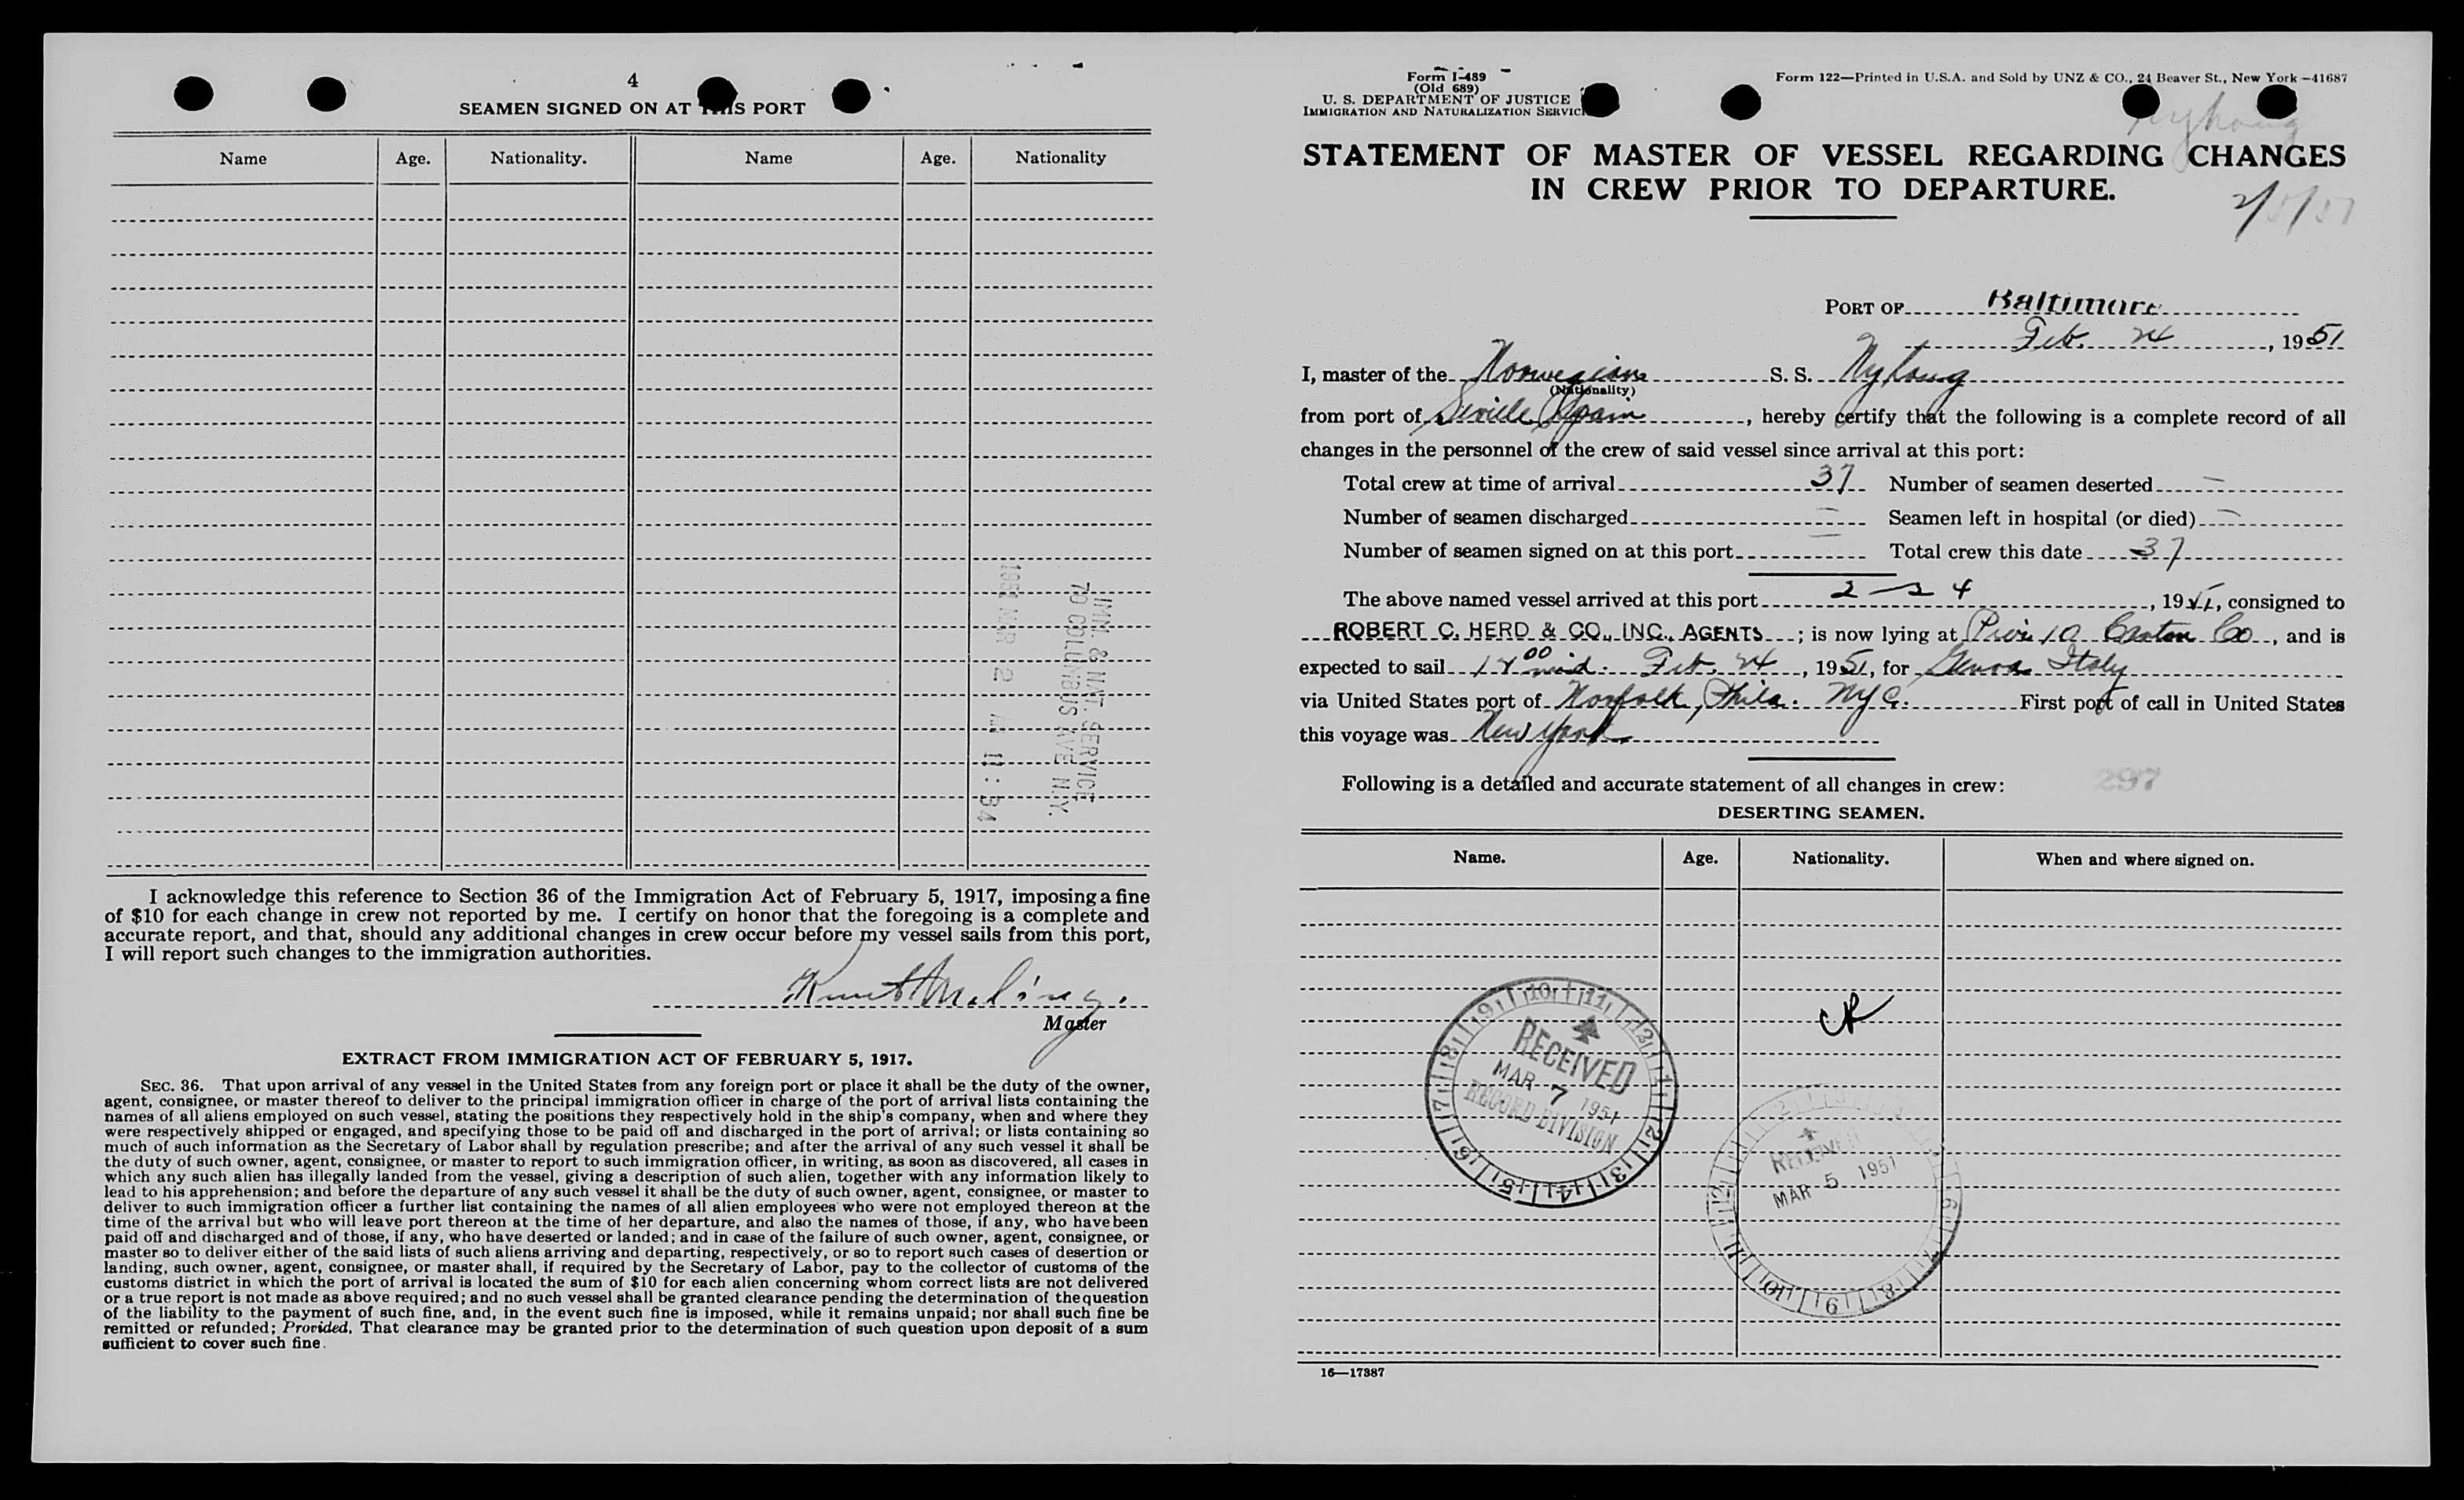 4
SEAMEN SIGNED ON AT THIS PORT
Name Age. Nationality. Name Age. Nationality
IMM. & NAT. SERVICE
70 COLUMBUS AVE N.Y.
1951 MAR 2 AM 11:34
I acknowledge this reference to Section 36 of the Immigration Act of February 5, 1917, imposing a fine
of $10 for each change in crew not reported by me. I certify on honor that the foregoing is a complete and
accurate report, and that, should any additional changes in crew occur before my vessel sails from this port,
I will report such changes to the immigration authorities.
Master
EXTRACT FROM IMMIGRATION ACT OF FEBRUARY 5, 1917.
SEC. 36. That upon arrival of any vessel in the United States from any foreign port or place it shall be the duty of the owner,
agent, consignee, or master thereof to deliver to the principal immigration officer in charge of the port of arrival lists containing the
names of all aliens employed on such vessel, stating the positions they respectively hold in the ship's company, when and where they
were respectively shipped or engaged, and specifying those to be paid off and discharged in the port of arrival; or lists containing so
much of such information as the Secretary of Labor shall by regulation prescribe; and after the arrival of any such vessel it shall be
the duty of such owner, agent, consignee, or master to report to such immigration officer, in writing, as soon as discovered, all cases in
which any such alien has illegally landed from the vessel, giving a description of such alien, together with any information likely to
lead to his apprehension; and before the departure of any such vessel it shall be the duty of such owner, agent, consignee, or master to
deliver to such immigration officer a further list containing the names of all alien employees who were not employed thereon at the
time of the arrival but who will leave port thereon at the time of her departure, and also the names of those, if any, who have been
paid off and discharged and of those, if any, who have deserted or landed; and in case of the failure of such owner, agent, consignee, or
master so to deliver either of the said lists of such aliens arriving and departing, respectively, or so to report such cases of desertion or
landing, such owner, agent, consignee, or master shall, if required by the Secretary of Labor, pay to the collector of customs of the
customs district in which the port of arrival is located the sum of $10 for each alien concerning whom correct lists are not delivered
or a true report is not made as above required; and no such vessel shall be granted clearance pending the determination of the question
of the liability to the payment of such fine, and, in the event such fine is imposed, while it remains unpaid; nor shall such fine be
remitted or refunded; Provided, That clearance may be granted prior to the determination of such question upon deposit of a sum
sufficient to cover such fine.
Form I-489
(Old 689)
U. S. DEPARTMENT OF JUSTICE
IMMIGRATION AND NATURALIZATION SERVICE
Form 122—Printed in U.S.A. and Sold by UNZ & CO., 24 Beaver St., New York—41687
Nyhaug
STATEMENT OF MASTER OF VESSEL REGARDING CHANGES
IN CREW PRIOR TO DEPARTURE.
PORT OF Baltimore
Feb. 24, 1951
I, master of the Norwegian S. S. Nyhaug
(Nationality)
from port of Seville Spain, hereby certify that the following is a complete record of all
changes in the personnel of the crew of said vessel since arrival at this port:
Total crew at time of arrival 37 Number of seamen deserted —
Number of seamen discharged — Seamen left in hospital (or died) —
Number of seamen signed on at this port — Total crew this date 37
The above named vessel arrived at this port 2-24, 1951, consigned to
ROBERT C. HERD & CO., INC., AGENTS; is now lying at Pier 10 Canton Co, and is
expected to sail 12 00 mid. Feb. 24, 1951, for Genoa Italy
via United States port of Norfolk, Phila. NYC. First port of call in United States
this voyage was New York
Following is a detailed and accurate statement of all changes in crew:
297
DESERTING SEAMEN.
Name. Age. Nationality. When and where signed on.
RECEIVED
MAR 7 1951
RECORD DIVISION
RECEIVED
MAR 5 1951
16—17387